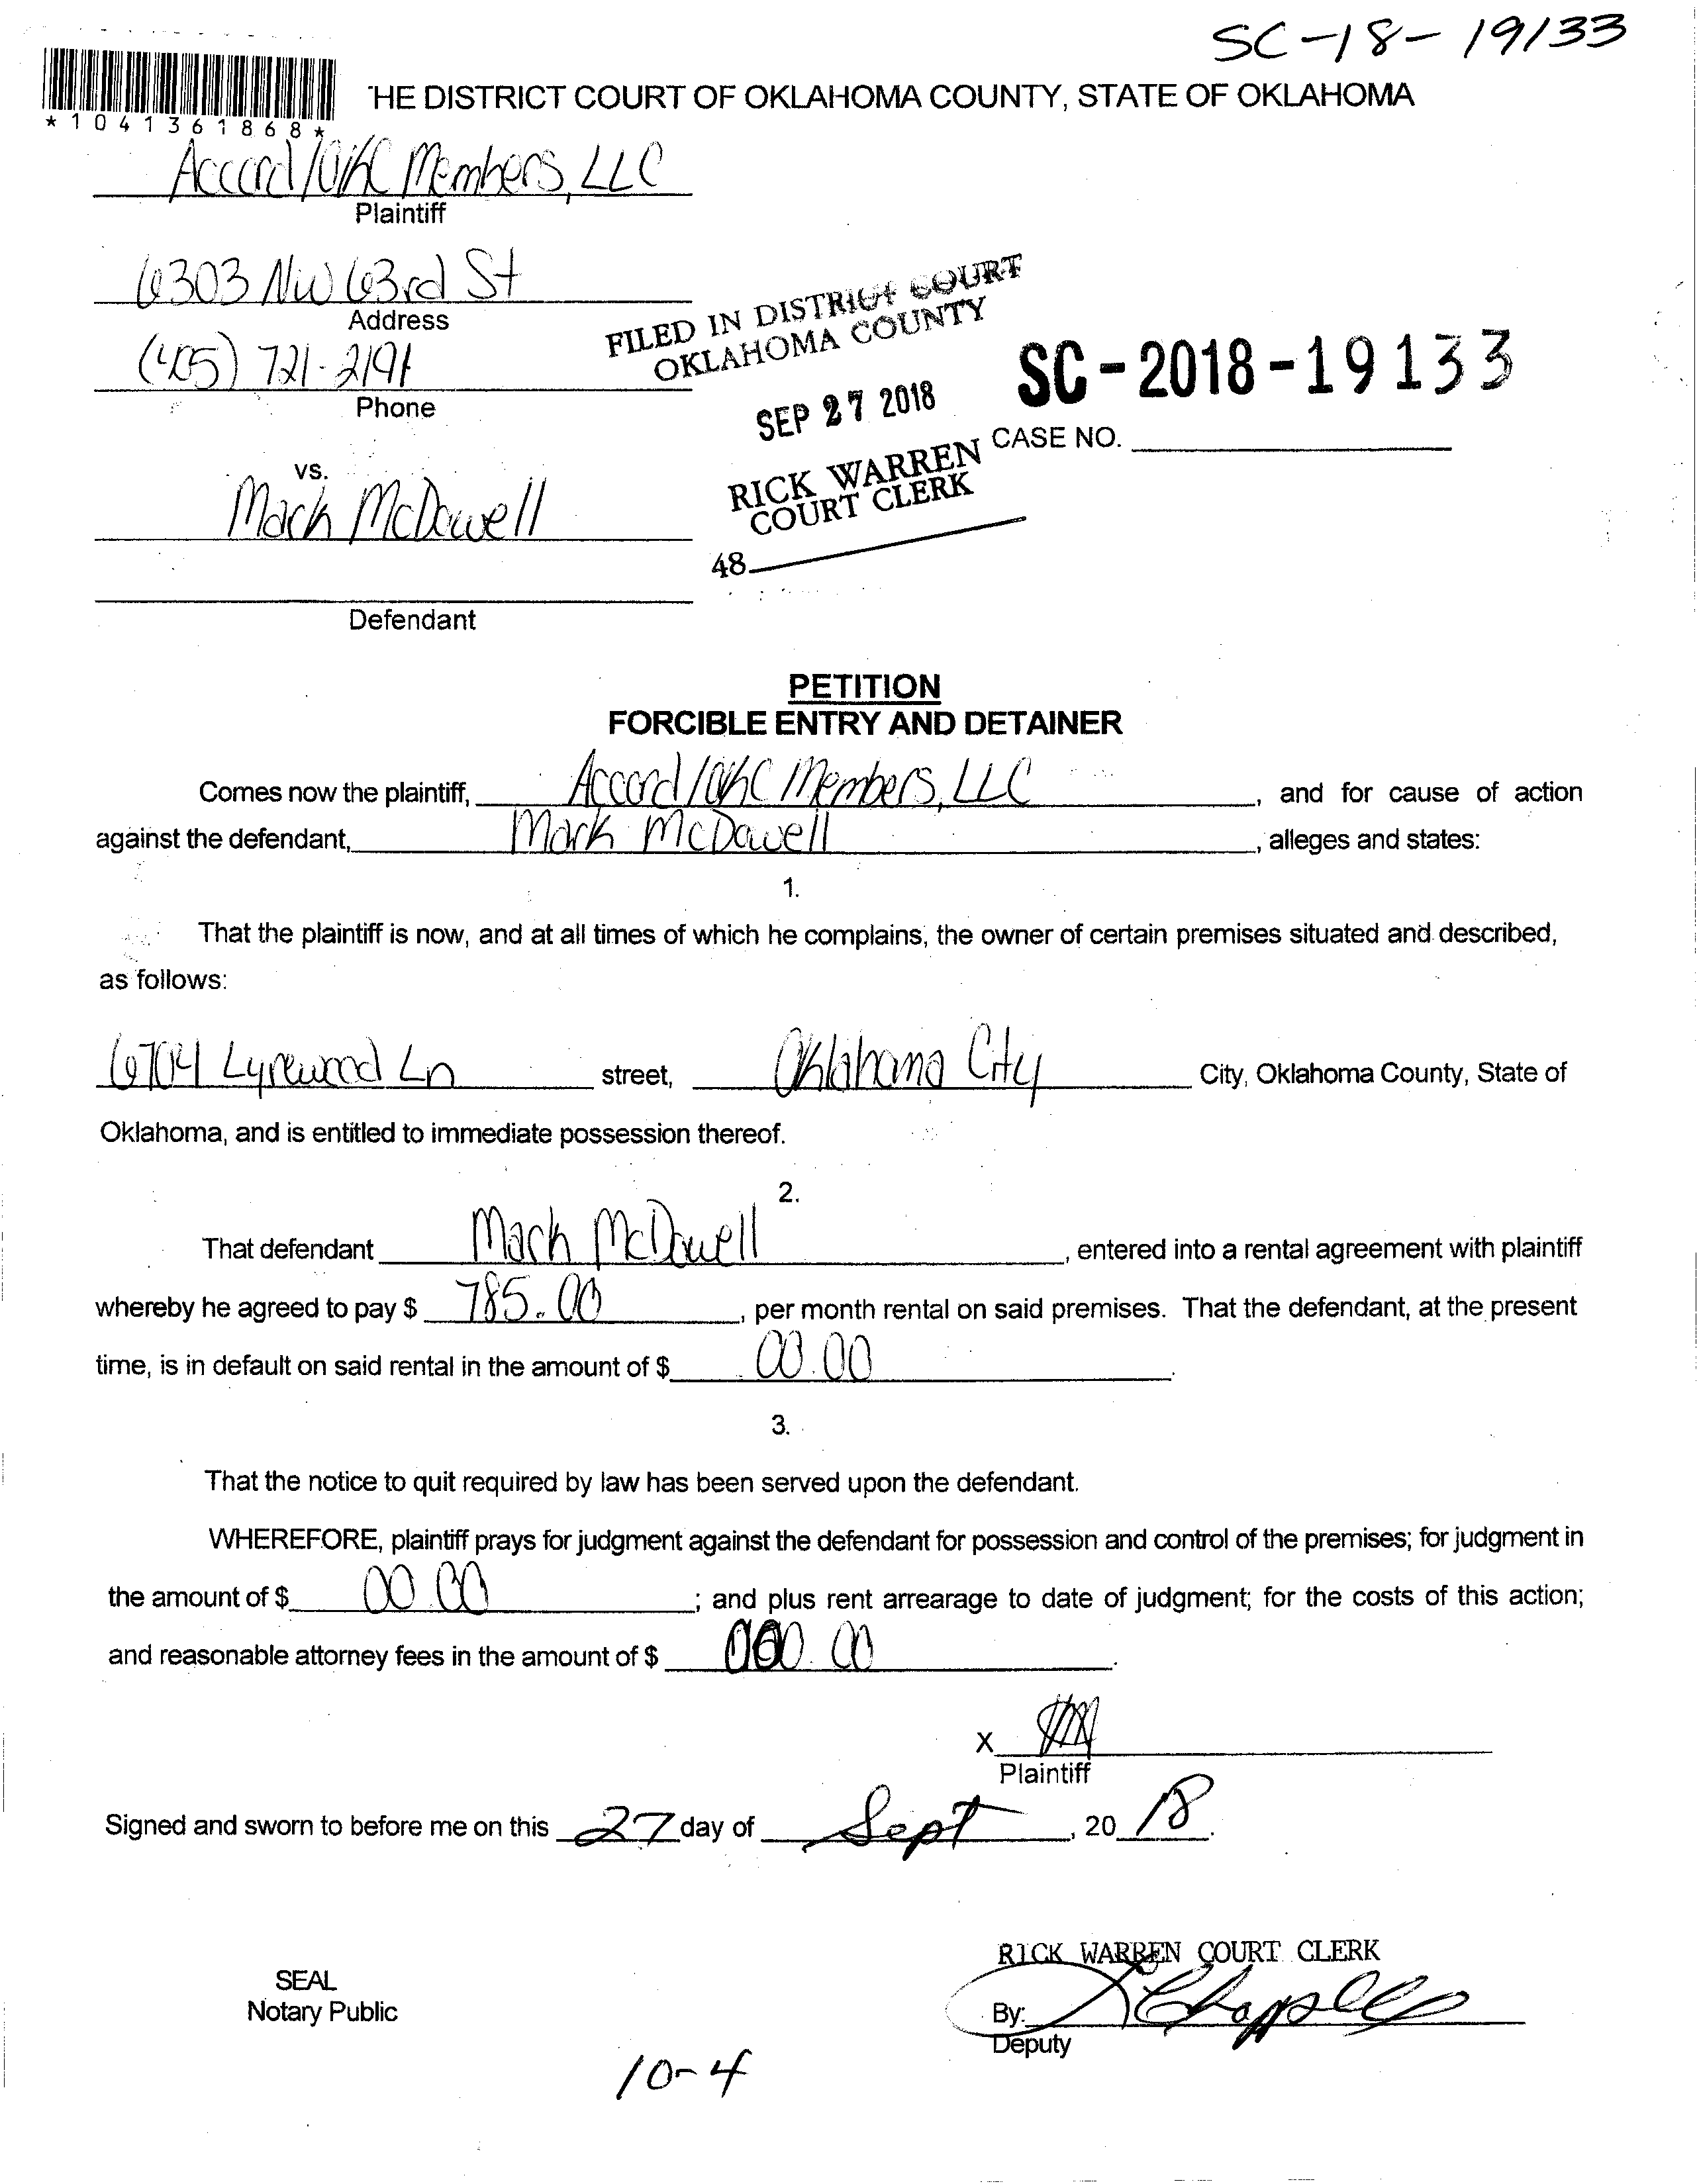 SC-18-19133
*1041361868*
HE DISTRICT COURT OF OKLAHOMA COUNTY, STATE OF OKLAHOMA
Accord/OKC Members, LLC
Plaintiff
6303 NW 63rd St
Address
(405) 721-2191
Phone
FILED IN DISTRICT COURT
OKLAHOMA COUNTY
SEP 27 2018
RICK WARREN
COURT CLERK
48
SC-2018-19133
CASE NO.
vs.
Mark McDowell
Defendant
PETITION
FORCIBLE ENTRY AND DETAINER
Comes now the plaintiff, Accord/OKC Members, LLC, and for cause of action
against the defendant, Mark McDowell, alleges and states:
1.
That the plaintiff is now, and at all times of which he complains, the owner of certain premises situated and described,
as follows:
6704 Lyrewood Ln street, Oklahoma City City, Oklahoma County, State of
Oklahoma, and is entitled to immediate possession thereof.
2.
That defendant Mark McDowell, entered into a rental agreement with plaintiff
whereby he agreed to pay $ 785.00, per month rental on said premises. That the defendant, at the present
time, is in default on said rental in the amount of $ 00.00.
3.
That the notice to quit required by law has been served upon the defendant.
WHEREFORE, plaintiff prays for judgment against the defendant for possession and control of the premises; for judgment in
the amount of $ 00.00; and plus rent arrearage to date of judgment; for the costs of this action;
and reasonable attorney fees in the amount of $ 000.00.
X
Plaintiff
Signed and sworn to before me on this 27 day of Sept, 20 18.
RICK WARREN COURT CLERK
SEAL
Notary Public
By:
Deputy
10-4